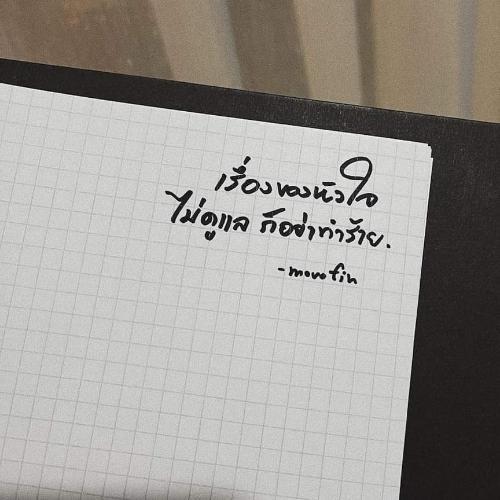 เรื่องของหัวใจ
ไม่ดูแล ก็อย่าทำร้าย.
-morofin